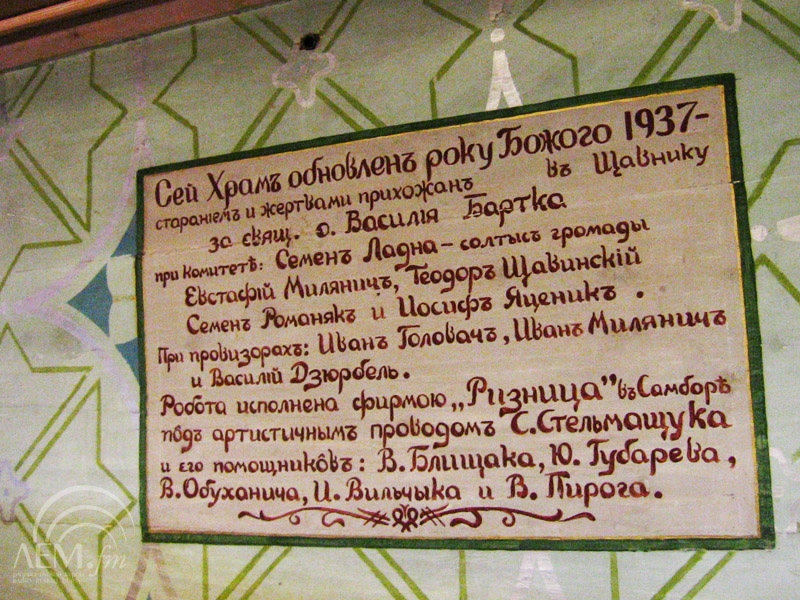 Сей Храмъ обновленъ року Божого 1937-
стараніемъ и жертвами прихожанъ въ Щавнику
за свящ. о. Василія Бартка
при комитетѣ: Семенъ Ладна - солтысъ громады
Евстафій Миляничъ, Теодоръ Щавинскій
Семенъ Романякъ и Иосифъ Яценикъ.
При провизорахъ: Иванъ Головачъ, Иванъ Миляничъ
и Василій Дзюрбель.
Робота исполнена фирмою „Ризница" въ Самборѣ
пôдъ артистичнымъ проводомъ С. Стельмащука
и его помощникôвъ: В. Блищака, Ю. Губарева,
В. Обуханича, И. Вильчыка и В. Пирога.
ЛЕМ.fm